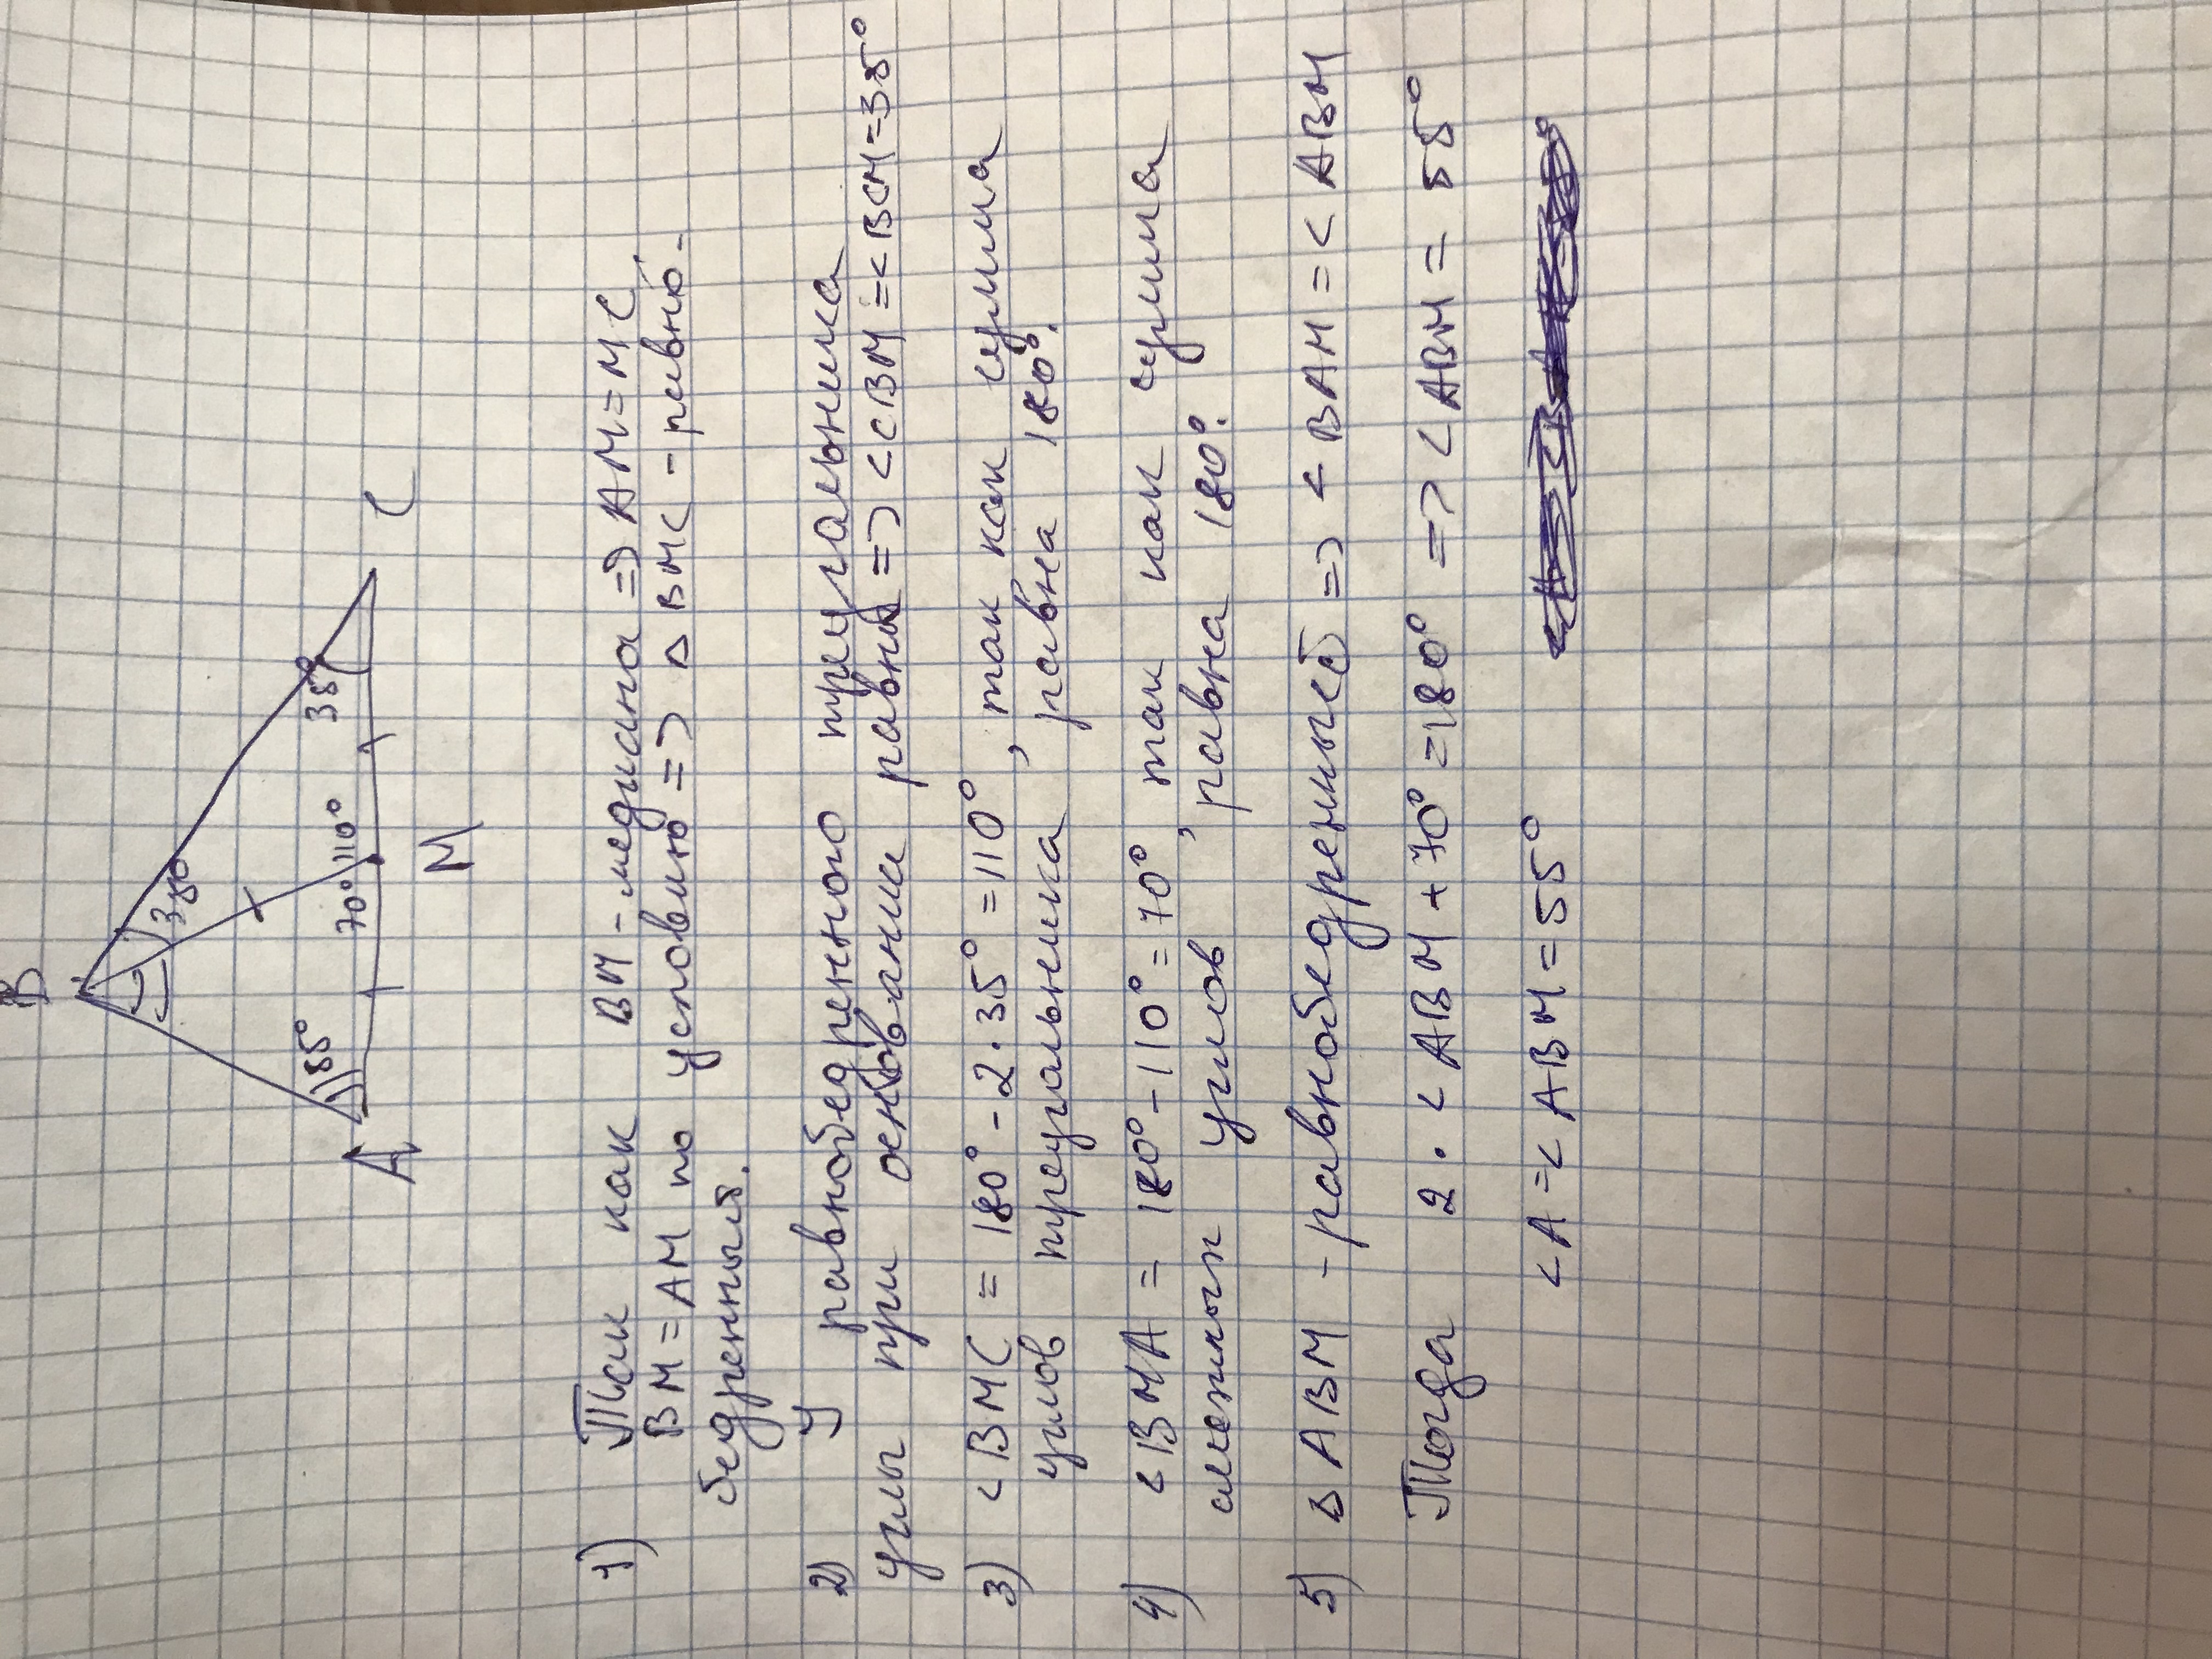 B
35°
35°
55°
70°
110°
A
M
C
1) Так как BM - медиана => AM = MC,
BM = AM по условию => △ BMC - равно-
бедренный.
2) У равнобедренного треугольника
углы при основании равны => <CBM = <BCM = 35°
3) <BMC = 180° - 2 · 35° = 110°, так как сумма
углов треугольника равна 180°.
4) <BMA = 180° - 110° = 70°, так как сумма
смежных углов равна 180°.
5) △ ABM - равнобедренный => <BAM = <ABM
Тогда 2 · <ABM + 70° = 180° => <ABM = 55°
<A = <ABM = 55°